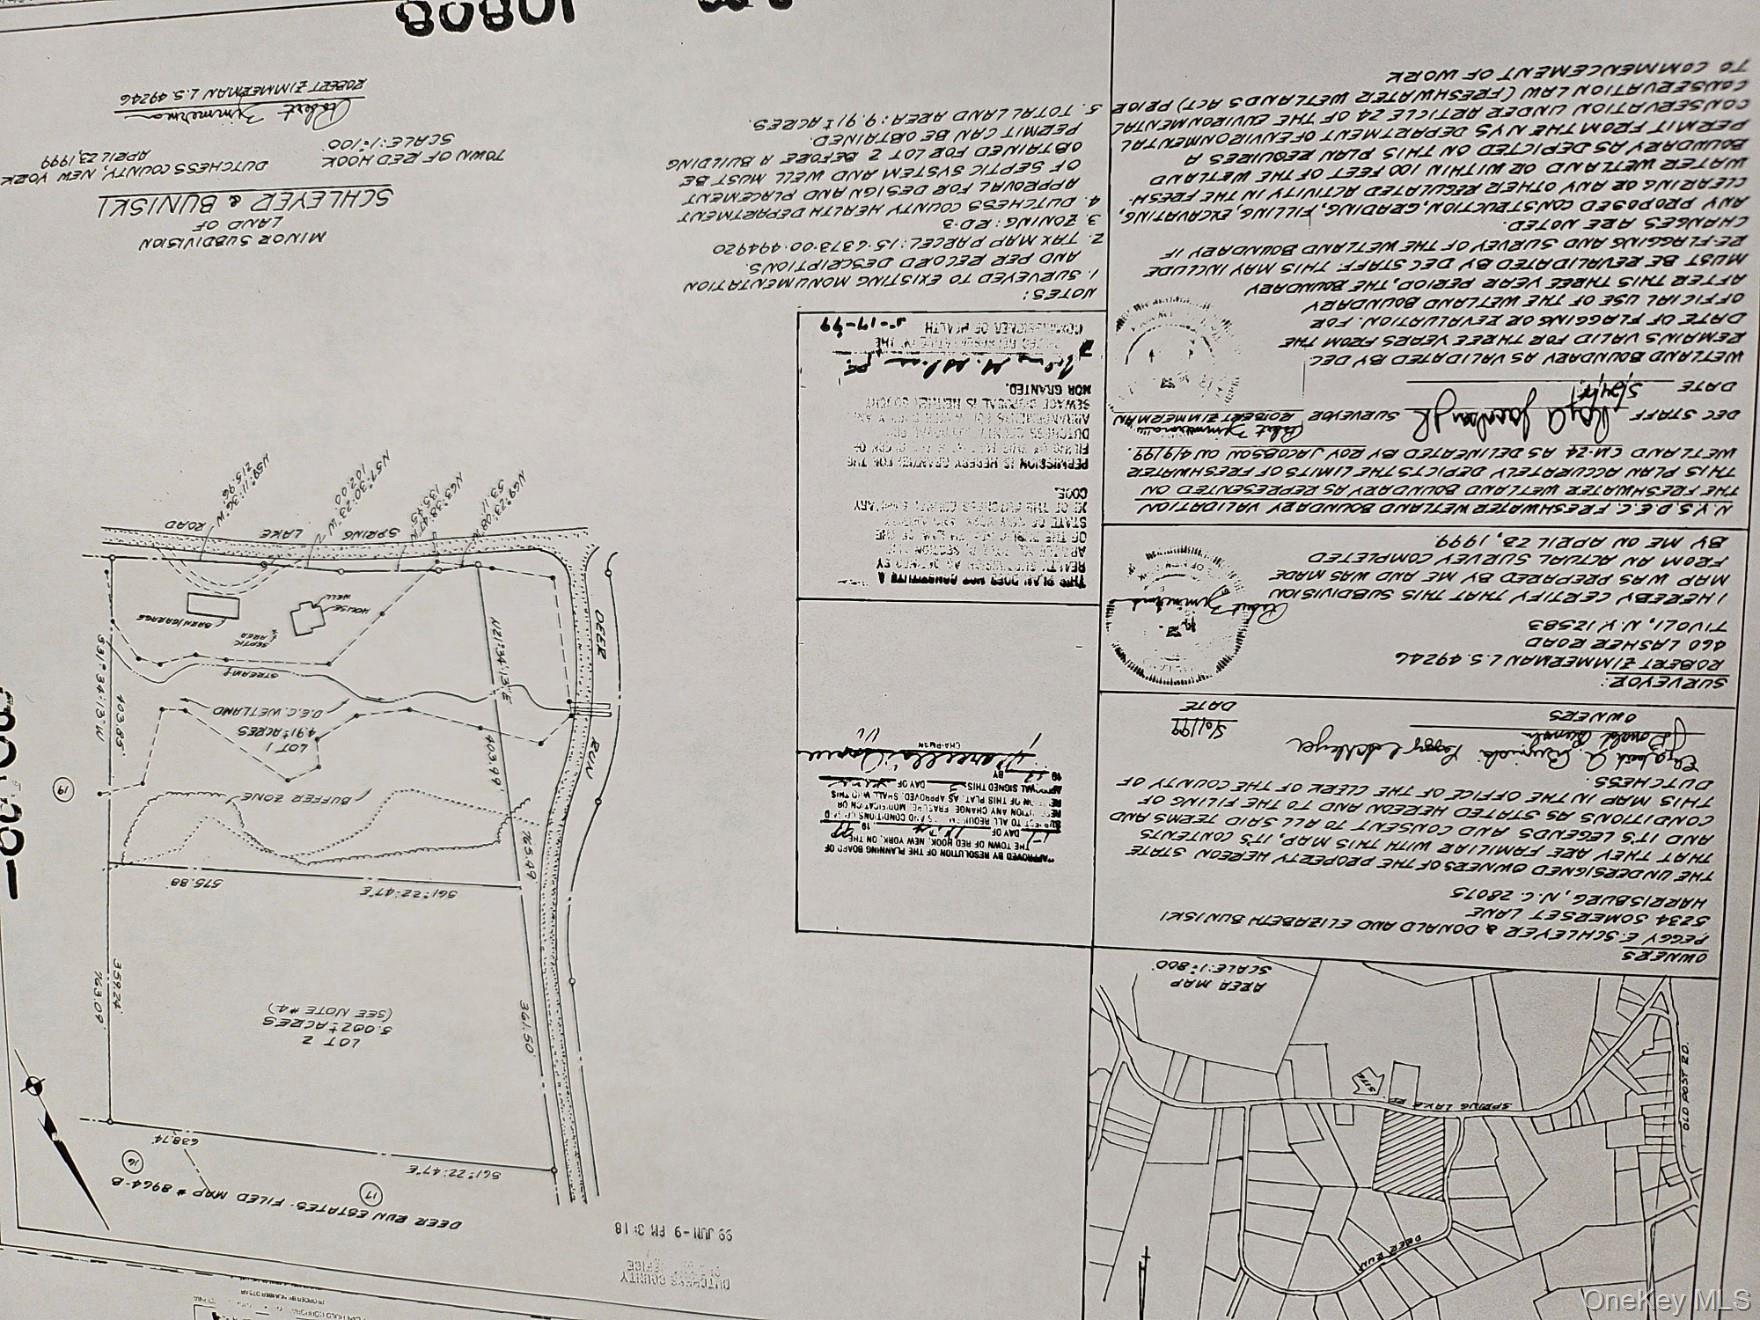 10808
AREA MAP
SCALE: 1"=800'
OLD POST RD.
SPRING LAKE RD.
SITE
DEER RUN
OWNERS
PEGGY E. SCHLEYER & DONALD AND ELIZABETH BUNISKI
5234 SOMERSET LANE
HARRISBURG, N.C. 28075
THE UNDERSIGNED OWNERS OF THE PROPERTY HEREON STATE
THAT THEY ARE FAMILIAR WITH THIS MAP, IT'S CONTENTS
AND IT'S LEGENDS AND CONSENT TO ALL SAID TERMS AND
CONDITIONS AS STATED HEREON AND TO THE FILING OF
THIS MAP IN THE OFFICE OF THE CLERK OF THE COUNTY OF
DUTCHESS
OWNERS
DATE
SURVEYOR:
ROBERT ZIMMERMAN L.S. 49246
460 LASHER ROAD
TIVOLI, N.Y. 12583
I HEREBY CERTIFY THAT THIS SUBDIVISION
MAP WAS PREPARED BY ME AND WAS MADE
FROM AN ACTUAL SURVEY COMPLETED
BY ME ON APRIL 23, 1999.
N.Y.S.D.E.C. FRESHWATER WETLAND BOUNDARY VALIDATION
THE FRESHWATER WETLAND BOUNDARY AS REPRESENTED ON
THIS PLAN ACCURATELY DEPICTS THE LIMITS OF FRESHWATER
WETLAND CM-24 AS DELINEATED BY ROY JACOBSON ON 4/9/99.
DEC STAFF SURVEYOR ROBERT ZIMMERMAN
DATE
WETLAND BOUNDARY AS VALIDATED BY DEC
REMAINS VALID FOR THREE YEARS FROM THE
DATE OF FLAGGING OR EVALUATION. FOR
OFFICIAL USE OF THE WETLAND BOUNDARY
AFTER THIS THREE YEAR PERIOD, THE BOUNDARY
MUST BE REVALIDATED BY DEC STAFF. THIS MAY INCLUDE
RE-FLAGGING AND SURVEY OF THE WETLAND BOUNDARY IF
CHANGES ARE NOTED.
ANY PROPOSED CONSTRUCTION, GRADING, FILLING, EXCAVATING,
CLEARING OR ANY OTHER REGULATED ACTIVITY IN THE FRESH-
WATER WETLAND OR WITHIN 100 FEET OF THE WETLAND
BOUNDARY AS DEPICTED ON THIS PLAN REQUIRES A
PERMIT FROM THE NYS DEPARTMENT OF ENVIRONMENTAL
CONSERVATION UNDER ARTICLE 24 OF THE ENVIRONMENTAL
CONSERVATION LAW (FRESHWATER WETLANDS ACT) PRIOR
TO COMMENCEMENT OF WORK
"APPROVED BY RESOLUTION OF THE PLANNING BOARD OF
THE TOWN OF RED HOOK, NEW YORK, ON THE
DAY OF 19
SUBJECT TO ALL REQUIREMENTS AND CONDITIONS OF SAID
RESOLUTION ANY CHANGE, ERASURE, MODIFICATION OR
REVISION OF THIS PLAT, AS APPROVED, SHALL VOID THIS
APPROVAL SIGNED THIS DAY OF
19 BY
CHAIRMAN
THIS PLAN DOES NOT CONSTITUTE A
REALTY SUBDIVISION AS DEFINED BY
CODE.
PERMISSION IS HEREBY GRANTED FOR THE
FILING OF THIS MAP
DUTCHESS COUNTY
SEWAGE DISPOSAL IS NEITHER SOUGHT
NOR GRANTED.
COMMISSIONER OF HEALTH
5-17-99
NOTES:
1. SURVEYED TO EXISTING MONUMENTATION
AND PER RECORD DESCRIPTIONS.
2. TAX MAP PARCEL: 15-6373-00-494920
3. ZONING: RD-3
4. DUTCHESS COUNTY HEALTH DEPARTMENT
APPROVAL FOR DESIGN AND PLACEMENT
OF SEPTIC SYSTEM AND WELL MUST BE
OBTAINED FOR LOT 2 BEFORE A BUILDING
PERMIT CAN BE OBTAINED.
5. TOTAL LAND AREA: 9.91± ACRES.
DUTCHESS COUNTY
99 JUN -9 PM 3:18
DEER RUN ESTATES - FILED MAP #8964-B
17
16
S61°22'47"E
638.74'
LOT 2
5.002± ACRES
(SEE NOTE #4)
361.50'
359.24'
763.09
S61°22'47"E
575.88'
765.49
BUFFER ZONE
19
LOT 1
4.91± ACRES
D.E.C. WETLAND
403.99
403.85'
RUN
DEER
STREAM
N21°34'13"E
S31°34'13"W
SEPTIC
AREA
HOUSE
WELL
BARN/GARAGE
SPRING LAKE ROAD
N69°23'08"W
53.11'
N63°38'47"W
N57°30'23"W
102.00'
N59°11'36"W
215.96'
MINOR SUBDIVISION
LAND OF
SCHLEYER & BUNISKI
TOWN OF RED HOOK DUTCHESS COUNTY, NEW YORK
SCALE: 1"=100' APRIL 23, 1999
ROBERT ZIMMERMAN L.S. 49246
OneKey MLS